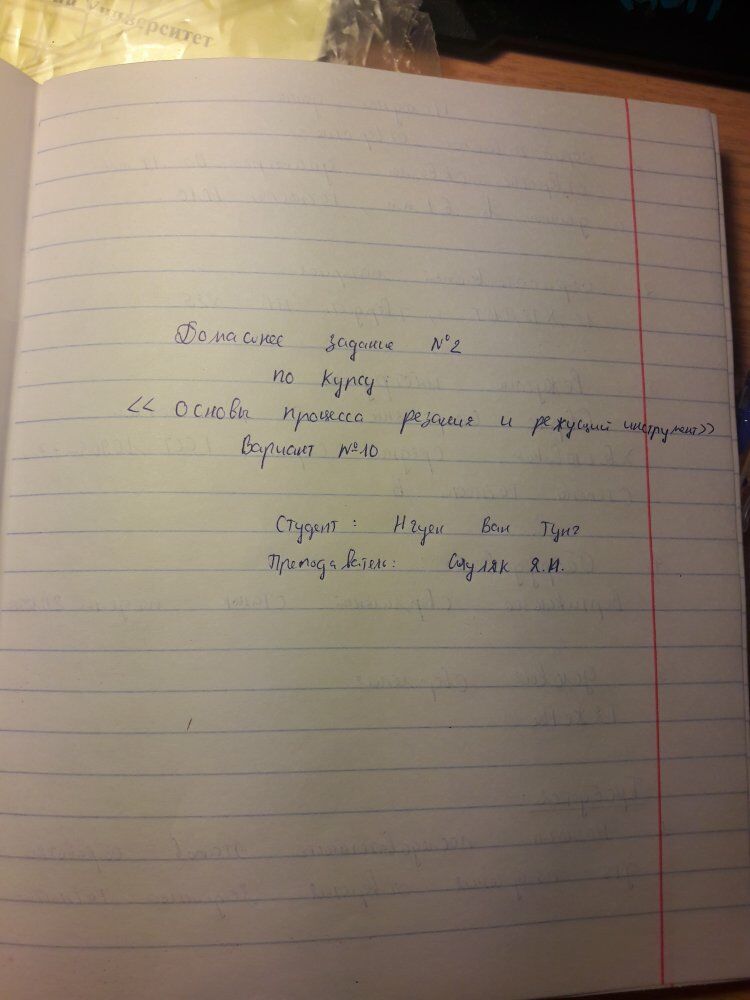 Университет
Домашнее задание №2
по курсу
<< Основы процесса резания и режущий инструмент>>
Вариант №10
Студент: Нгуен Ван Тунг
Преподаватель: Слуляк Я.И.